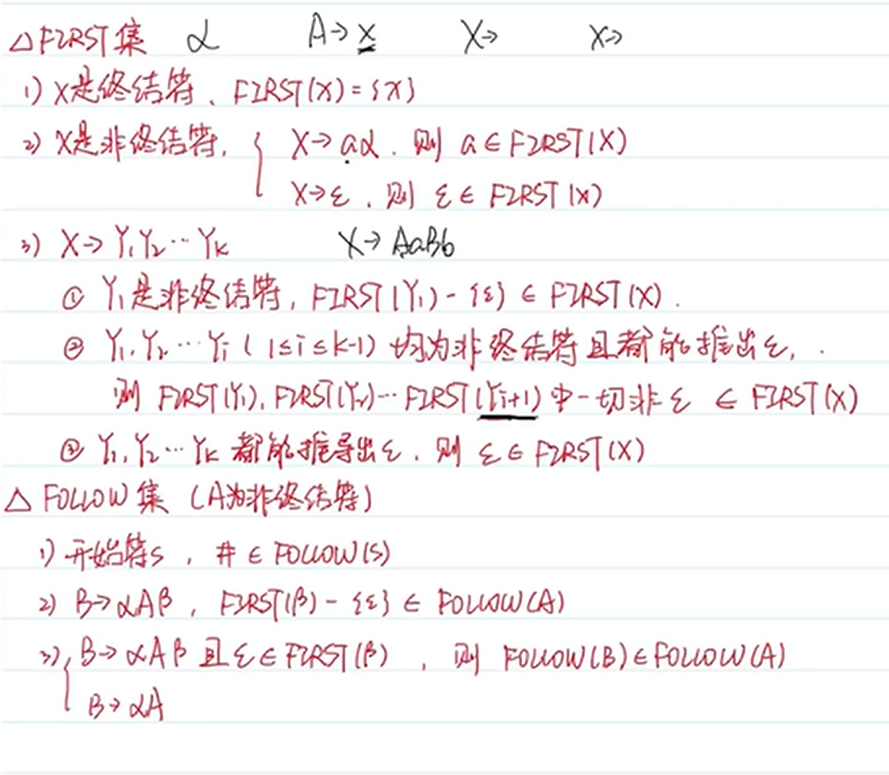 △FIRST集 α A→x X→ X→
1) X是终结符、FIRST(X)={X}
2) X是非终结符. { X→aα. 则 a∈FIRST(X)
X→ε, 则 ε∈FIRST(X)
3) X→Y₁Y₂…Yₖ X→AaBb
① Y₁是非终结符, FIRST(Y₁)-{ε}∈FIRST(X).
② Y₁.Y₂…Yi (1≤i≤k-1) 均为非终结符且都能推出ε,.
则 FIRST(Y₁), FIRST(Y₂)…FIRST(Yi+1)中一切非ε ∈ FIRST(X)
③ Y₁,Y₂…Yₖ 都能推导出ε. 则 ε∈FIRST(X)
△ FOLLOW集 (A为非终结符)
1) 开始符S, #∈FOLLOW(S)
2) B→αAβ, FIRST(β)-{ε}∈FOLLOW(A)
3) { B→αAβ且ε∈FIRST(β), 则 FOLLOW(B)∈FOLLOW(A)
B→αA